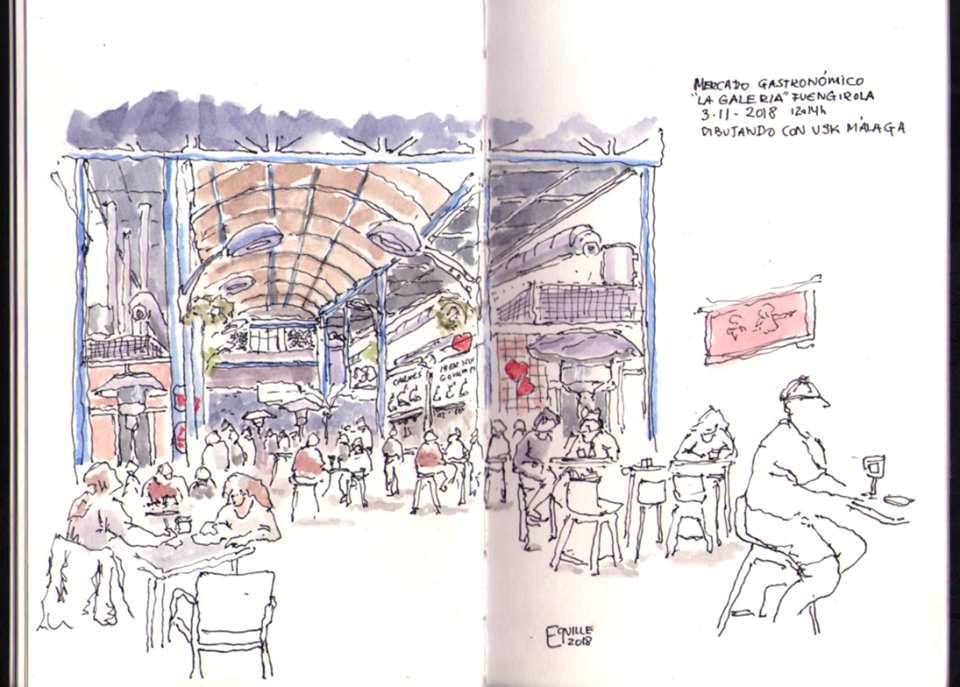 MERCADO GASTRONÓMICO
"LA GALERIA" FUENGIROLA
3-11-2018 12a14h
DIBUJANDO CON USK MÁLAGA
CARNES
IBER
EQUILLE
2018